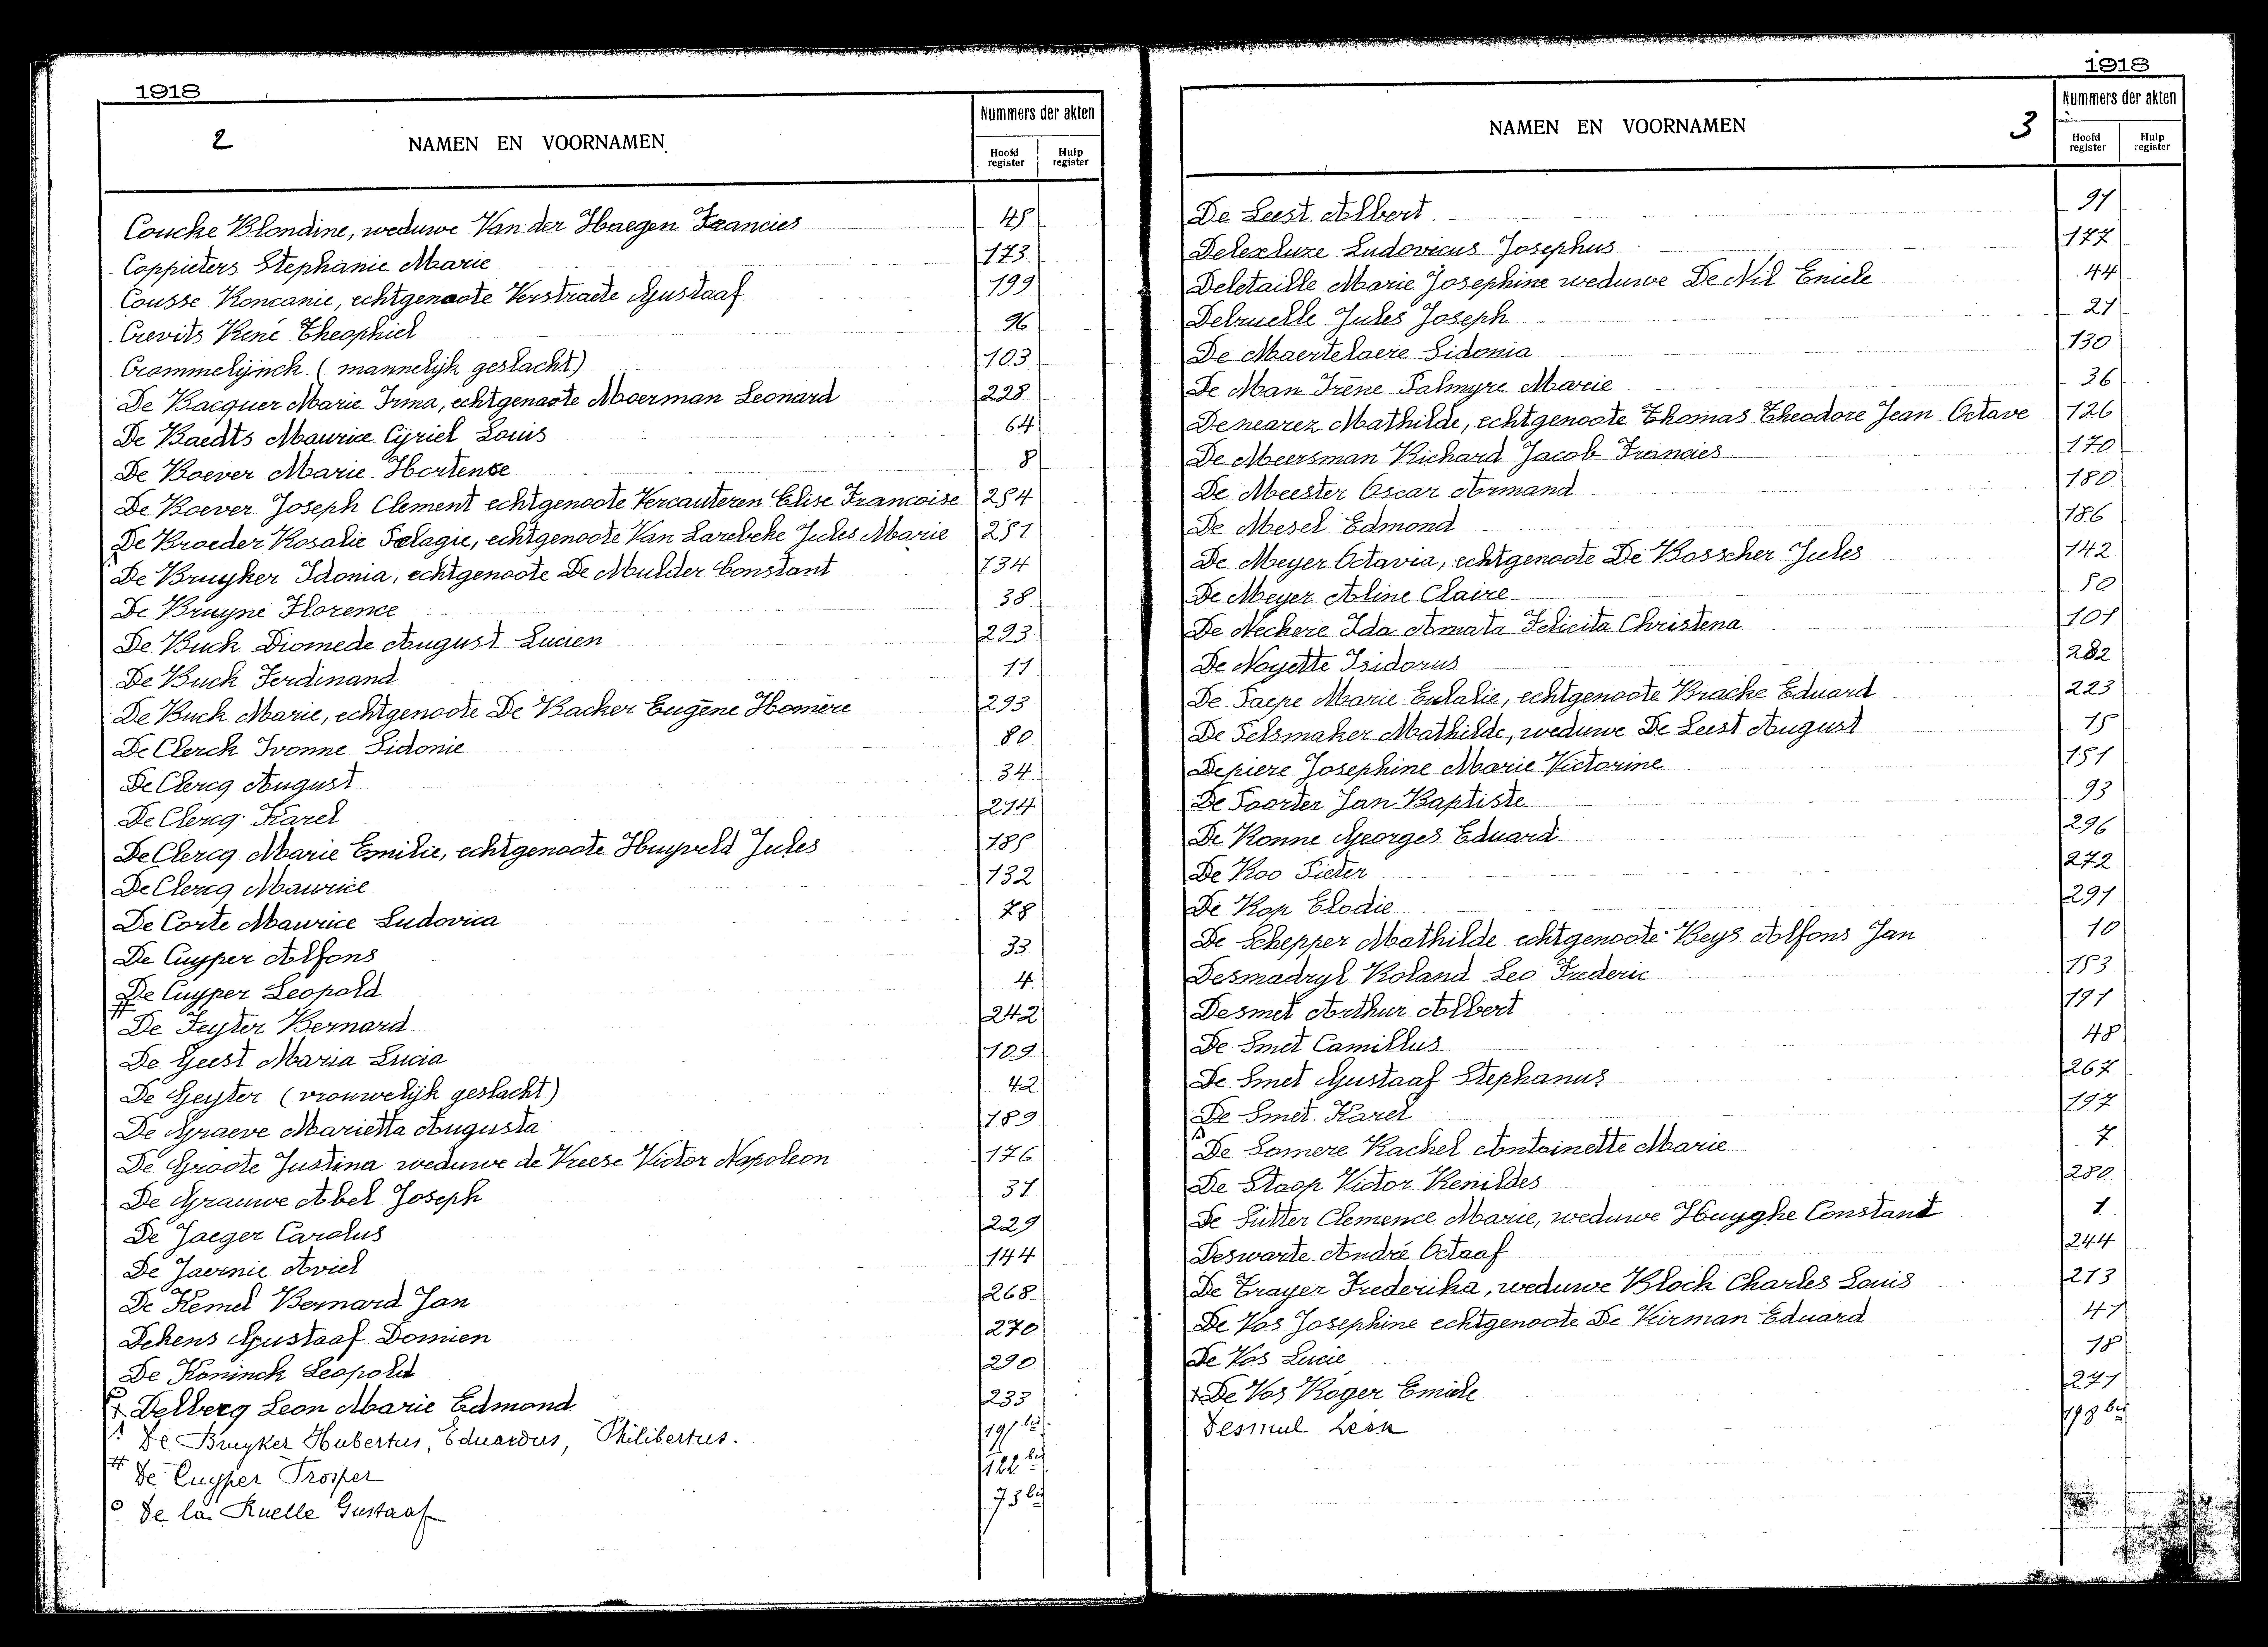 1918
2
NAMEN EN VOORNAMEN
Nummers der akten
Hoofd register
Hulp register
Coucke Blondine, weduwe Van der Haegen Francies 45
Coppieters Stephanie Marie 173
Cousse Romanie, echtgenoote Verstraete Gustaaf 199
Crevits René Theophiel 96
Crommelijnck (mannelijk geslacht) 103
De Bacquer Marie Irma, echtgenoote Moerman Leonard 228
De Baedts Maurice Cyriel Louis 64
De Boever Marie Hortense 8
De Boever Joseph Clement echtgenoote Vercauteren Elise Francoise 254
De Broeder Rosalie Pelagie, echtgenoote Van Larebeke Jules Marie 251
De Bruyker Idonia, echtgenoote De Mulder Constant 134
De Bruyne Florence 38
De Buck Diomede August Lucien 293
De Buck Ferdinand 11
De Buck Marie, echtgenoote De Backer Eugène Homère 293
De Clerck Ivonne Sidonie 80
De Clercq August 34
De Clercq Karel 214
De Clercq Marie Emilie, echtgenoote Huyveld Jules 185
De Clercq Maurice 132
De Corte Maurice Ludovica 78
De Cuyper Alfons 33
De Cuyper Leopold 4
# De Feyter Bernard 242
De Geest Maria Lucia 109
De Geyter (vrouwelijk geslacht) 42
De Graeve Marietta Augusta 189
De Groote Justina weduwe de Vreese Victor Napoleon 176
De Grauwe Abel Joseph 31
De Jaeger Carolus 229
De Jaernie Aviel 144
De Kemel Bernard Jan 268
Dekens Gustaaf Domien 270
De Koninck Leopold 290
Delberg Leon Marie Edmond 233
De Bruyker Hubertus, Eduardus, Philibertus. 191 bis
# De Cuyper Prosper 122 bis
° De la Ruelle Gustaaf 73 bis
1918
3
NAMEN EN VOORNAMEN
Nummers der akten
Hoofd register
Hulp register
De Leest Albert 91
Delexluze Ludovicus Josephus 177
Deletaille Marie Josephine weduwe De Nil Emiele 44
Delruelle Jules Joseph 21
De Maertelaere Sidonia 130
De Man Irène Palmyre Marie 36
Denearez Mathilde, echtgenoote Thomas Theodore Jean Octave 126
De Meersman Richard Jacob Francies 170
De Meester Oscar Armand 180
De Mesel Edmond 186
De Meyer Octavia, echtgenoote De Bosscher Jules 142
De Meyer Aline Claire 50
De Neckere Ida Amata Felicita Christena 101
De Noyette Isidorus 282
De Paepe Marie Eulalie, echtgenoote Bracke Eduard 223
De Pelsmaker Mathilde, weduwe De Leest August 15
Depiere Josephine Marie Victorine 151
De Poorter Jan Baptiste 93
De Ronne Georges Eduard 296
De Roo Pieter 272
De Rop Elodie 291
De Schepper Mathilde echtgenoote Beys Alfons Jan 10
Desmadryl Roland Leo Frederic 153
Desmet Arthur Albert 191
De Smet Camillus 48
De Smet Gustaaf Stephanus 267
De Smet Karel 197
De Somere Rachel Antoinette Marie 7
De Stoop Victor Renildes 280
De Sutter Clemence Marie, weduwe Huyghe Constant 1
Deswarte André Octaaf 244
De Trayer Frederika, weduwe Block Charles Louis 213
De Vos Josephine echtgenoote De Kurman Eduard 47
De Vos Lucie 18
De Vos Roger Emiele 271
Desmul Léon 198 bis